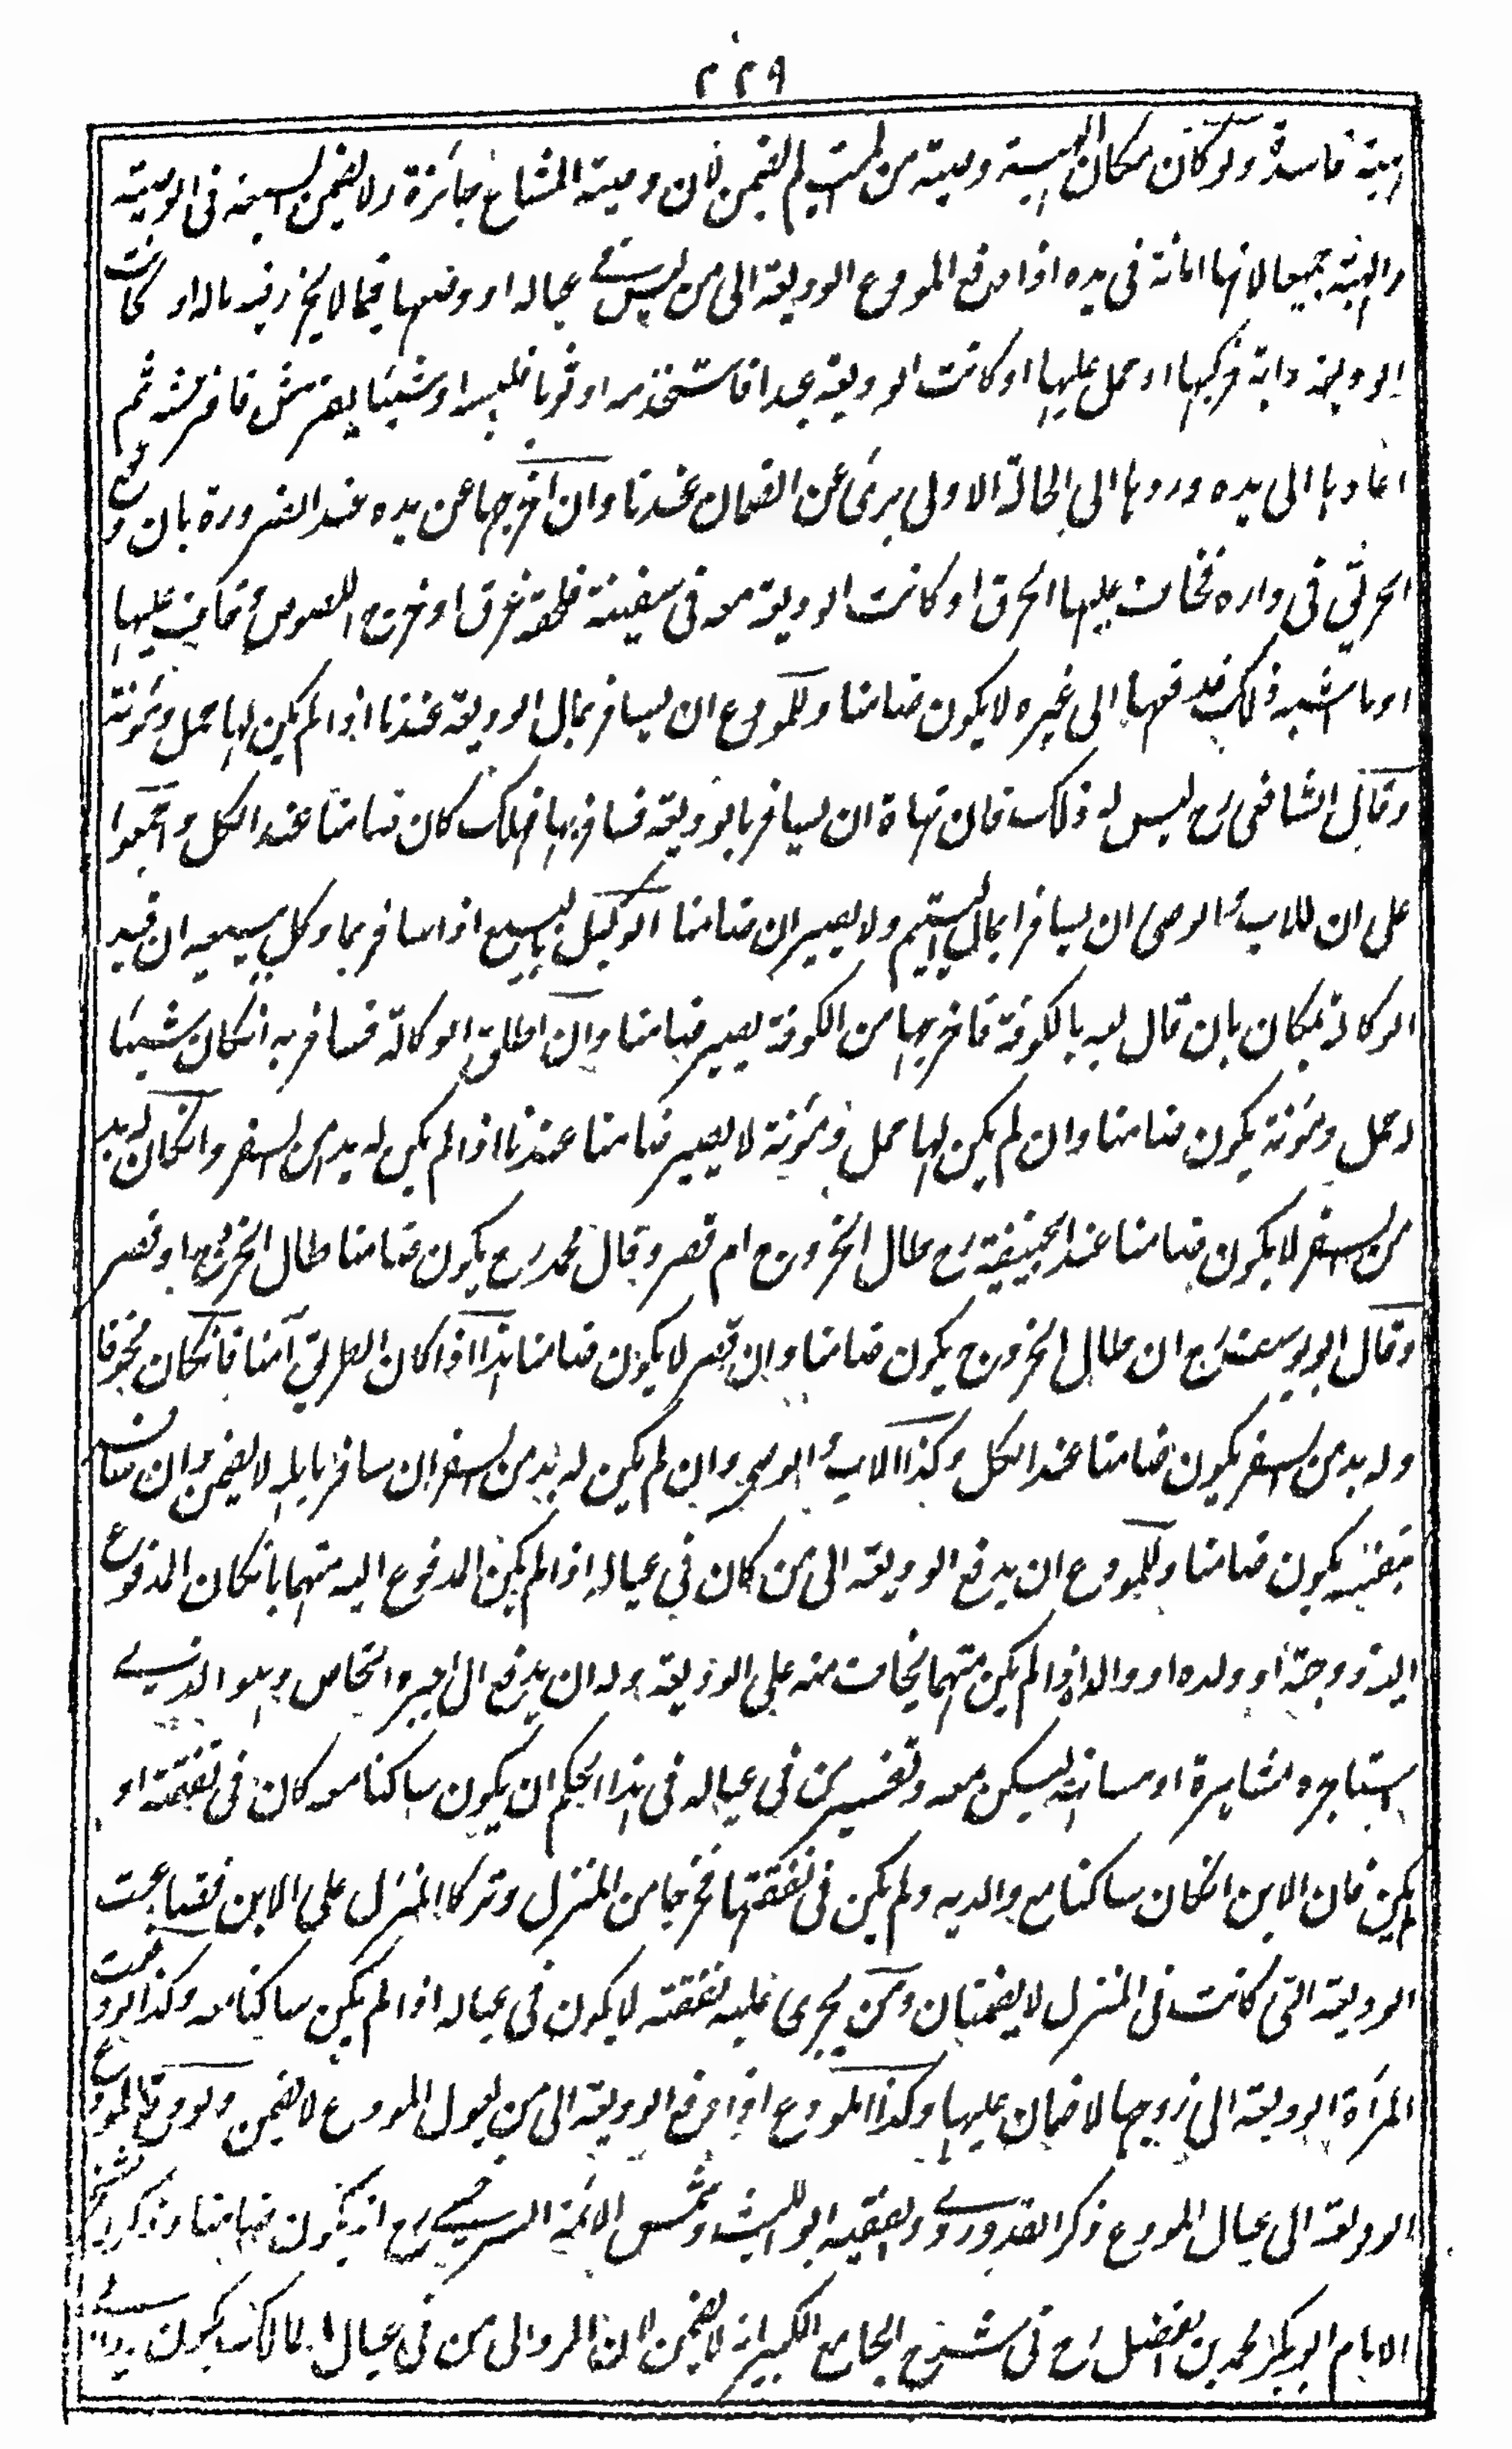 ٢٢٩
هبة فاسدة ولو كان مكان الهبة وصية من لميت لم يضمن لان وصية المشاع جائزة ولا يضمن لسبعة فى الوصية
والهبة جميعا لانها امانة فى يده اذا دفع المودع الوديعة الى من ليس فے عياله او وضعها فيما لا يحرز فيه ماله او كانت
الوديعة دابة فركبها او حمل عليها او كانت الوديعة عبدا فاستخدمه او ثوبا فلبسه او شيئا يفترش فافترشه ثم
اعادها الى يده وردها الى الحالة الاولى برئ عن الضمان عندنا وان اخرجها عن يده عند الضرورة بان وقع
الحريق فى داره فخاف عليها الحرق او كانت الوديعة معه فى سفينة فلحقه غرق او خرج اللصوص فخاف عليها
او ما اشبه ذلك فدفعها الى غيره لا يكون ضامنا وللمودع ان يسافر بمال الوديعة عندنا اذا لم يكن لها حمل ومؤنة
وقال الشافعى رح ليس له ذلك فان نهاه ان يسافر بالوديعة فسافر بها فهلك كان ضامنا عند الكل واجمعوا
على ان للاب والوصى ان يسافرا بمال ليتيم ولا يصيران ضامنا الوكيل بالبيع اذا سافر بما وكل ببيعه ان قيد
الوكالة بمكان بان قال بعه بالكوفة فاخرجها من الكوفة يصير ضامنا وان اطلق الوكالة فسافر به انكان شيئا
له حمل ومؤنة يكون ضامنا وان لم يكن لها حمل ومؤنة لا يصير ضامنا عندنا اذا لم يكن له بد من لسفر وانكان له بد
من لسفر لا يكون ضامنا عند ابيحنيفة رح طال الخروج ام قصر وقال محمد رح يكون ضامنا طال الخروج او قصر
وقال ابو يوسف رح ان طال الخروج يكون ضامنا وان قصر لا يكون ضامنا هذا اذا كان الطريق آمنا فانكان مخوفا
وله بد من لسفر يكون ضامنا عند الكل وكذا الاب والوصى وان لم يكن له بد من لسفر ان سافر باهله لا يضمن وان سافر
بنفسه يكون ضامنا وللمودع ان يدفع الوديعة الى من كان فى عياله اذا لم يكن المدفوع اليه متهما بانكان المدفوع
اليه زوجة او ولده او والداه اذا لم يكن متهما يخاف منه على الوديعة وله ان يدفع الى اجير الخاص وهو الذے
استاجره مشاهرة او مسانهة ليسكن معه وتفسير من فى عياله فى هذا الحكم ان يكون ساكنا معه كان فى نفقته او
لم يكن فان الابن انكان ساكنا مع والديه ولم يكن فى نفقتهما فخرجا من المنزل وتركا المنزل على الابن فضاعت
الوديعة التى كانت فى المنزل لا يضمنان ومن يجرى عليه نفقته لا يكون فى عياله اذا لم يكن ساكنا معه وكذا لو دفعت
المرأة الوديعة الى زوجها لا ضمان عليها وكذا المودع اذا دفع الوديعة الى من يعول المودع لا يضمن ولو دفع المودع
الوديعة الى عيال المودع ذكر القدورے والفقيه ابو الليث وشمس الائمة السرخسے رح انه يكون ضامنا وذكر الشيخ
الامام ابو بكر محمد بن الفضل رح فى شرح الجامع الكبير انه لا يضمن لان الرد الى من فى عيال المالك يكون ردا